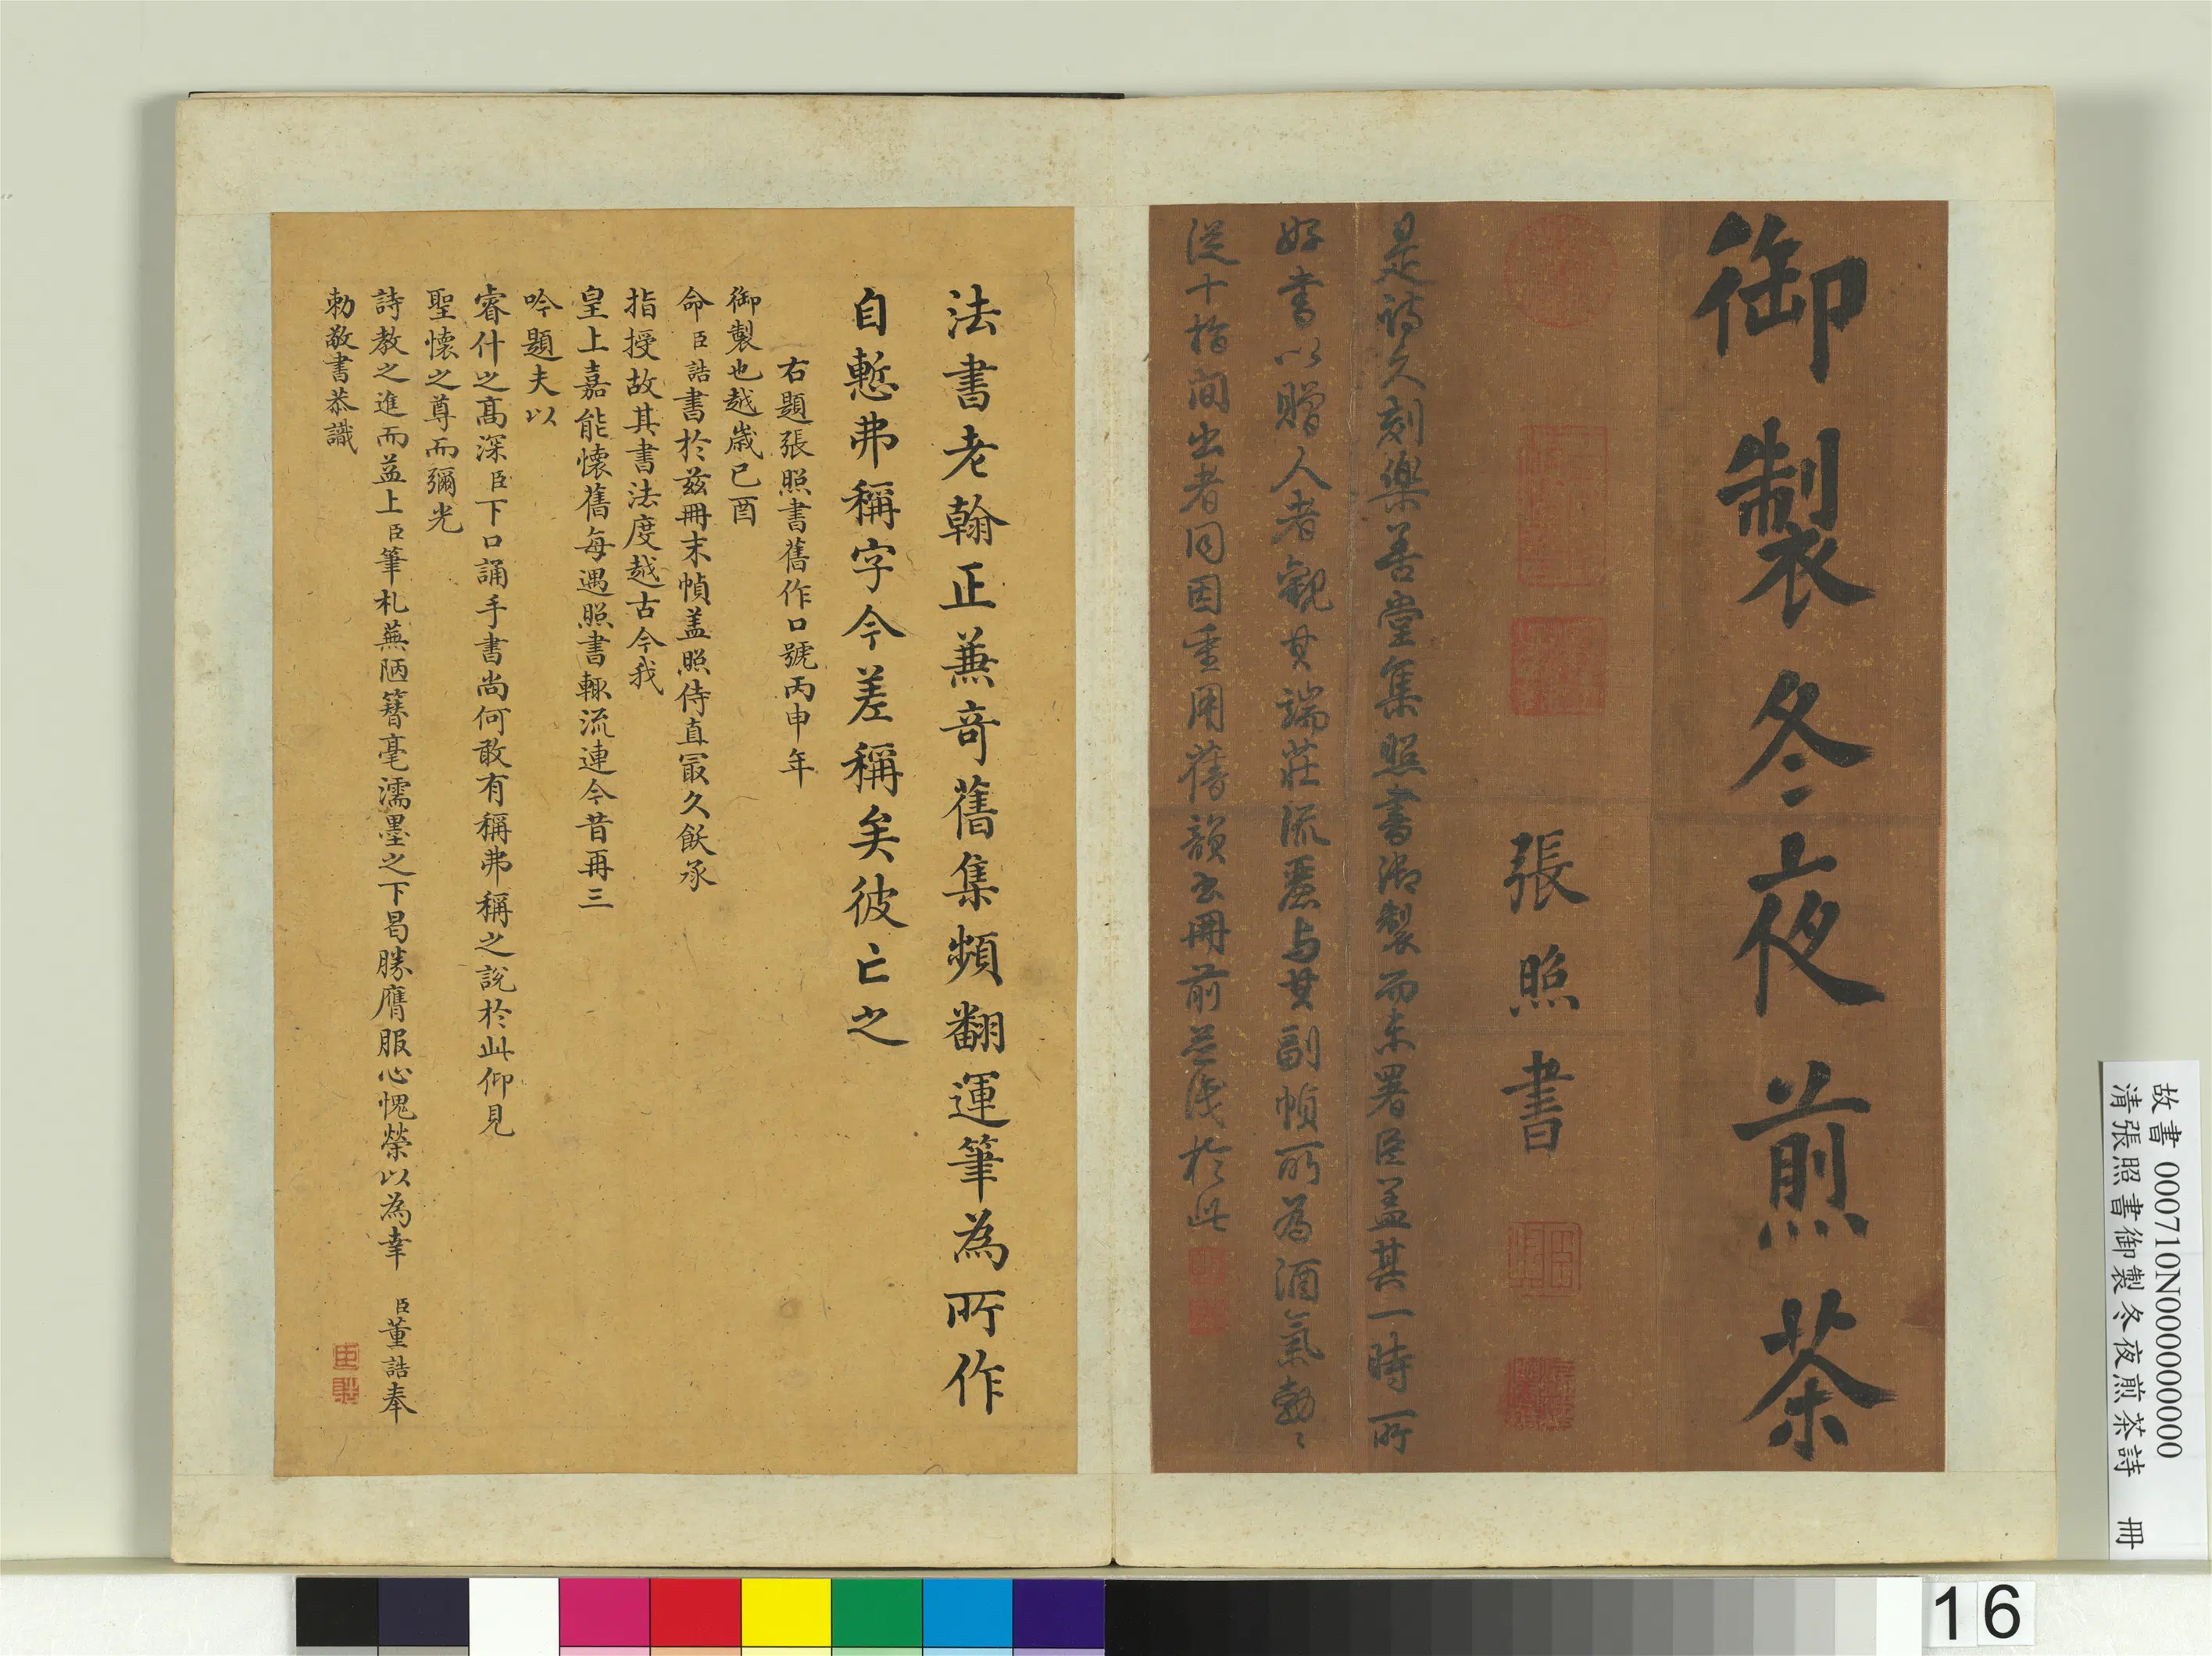 御製冬夜煎茶
張照書
是詩久刻樂善堂集照書御製而未署臣蓋其一時所
好書以贈人者觀其端莊流麗与其副幀所為酒氣勃〻
從十指間出者同因重用舊韻書冊前並識於此
法書老翰正兼奇舊集頻翻運筆為所作
自慙弗稱字今差稱矣彼亡之
右題張照書舊作口號丙申年
御製也越歲己酉
命臣誥書於茲冊末幀盖照侍直冣久飫承
指授故其書法度越古今我
皇上嘉能懷舊每遇照書輒流連今昔再三
吟題夫以
睿什之高深臣下口誦手書尚何敢有稱弗稱之說於此仰見
聖懷之尊而彌光
詩教之進而益上臣筆札蕪陋簪毫濡墨之下曷勝膺服心愧榮以為幸 臣董誥奉
勅敬書恭識
故書 000710N000000000
清張照書御製冬夜煎茶詩 冊
16